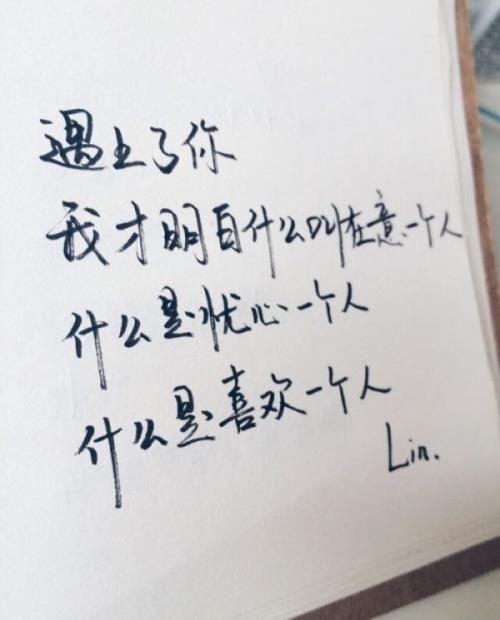 遇上了你
我才明白什么叫在意一个人
什么是忧心一个人
什么是喜欢一个人
Lin.